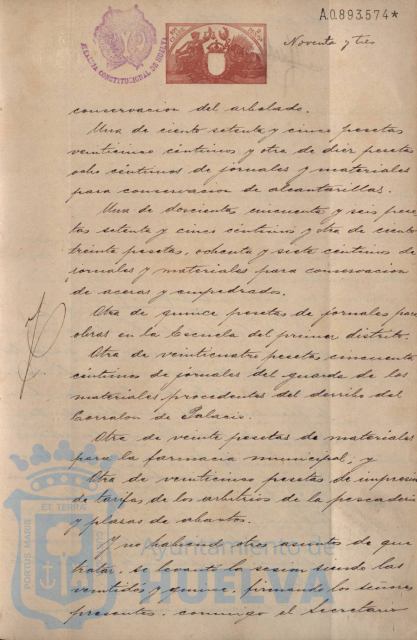 A.0.893.574*
ALCALDIA CONSTITUCIONAL DE HUELVA
Noventa y tres
conservacion del arbolado.
Una de ciento setenta y cinco pesetas
veinticinco céntimos y otra de diez pesetas
ocho céntimos de jornales y materiales
para conservacion de alcantarillas.
Una de doscientas cincuenta y seis pese
tas setenta y cinco céntimos y otra de ciento
treinta pesetas, ochenta y siete céntimos de
jornales y materiales para conservacion
de aceras y empedrados.
Otra de quince pesetas de jornales para
obras en la Escuela del primer distrito.
Otra de veinticuatro pesetas cincuenta
céntimos de jornales del guarda de los
materiales procedentes del derribo del
Corralon de Palacio.
Otra de veinte pesetas de materiales
para la farmacia municipal, y
Otra de veinticinco pesetas de impresion
de tarifas de los arbitrios de la pescaderia
y plazas de abastos.
Y no habiendo otros asuntos de que
tratar, se levantó la sesion siendo las
veintidós y quince, firmando los señores
presentes, conmigo el Secretario
PORTUS MARIS ET TERRÆ CUSTODIA
Ayuntamiento de
HUELVA